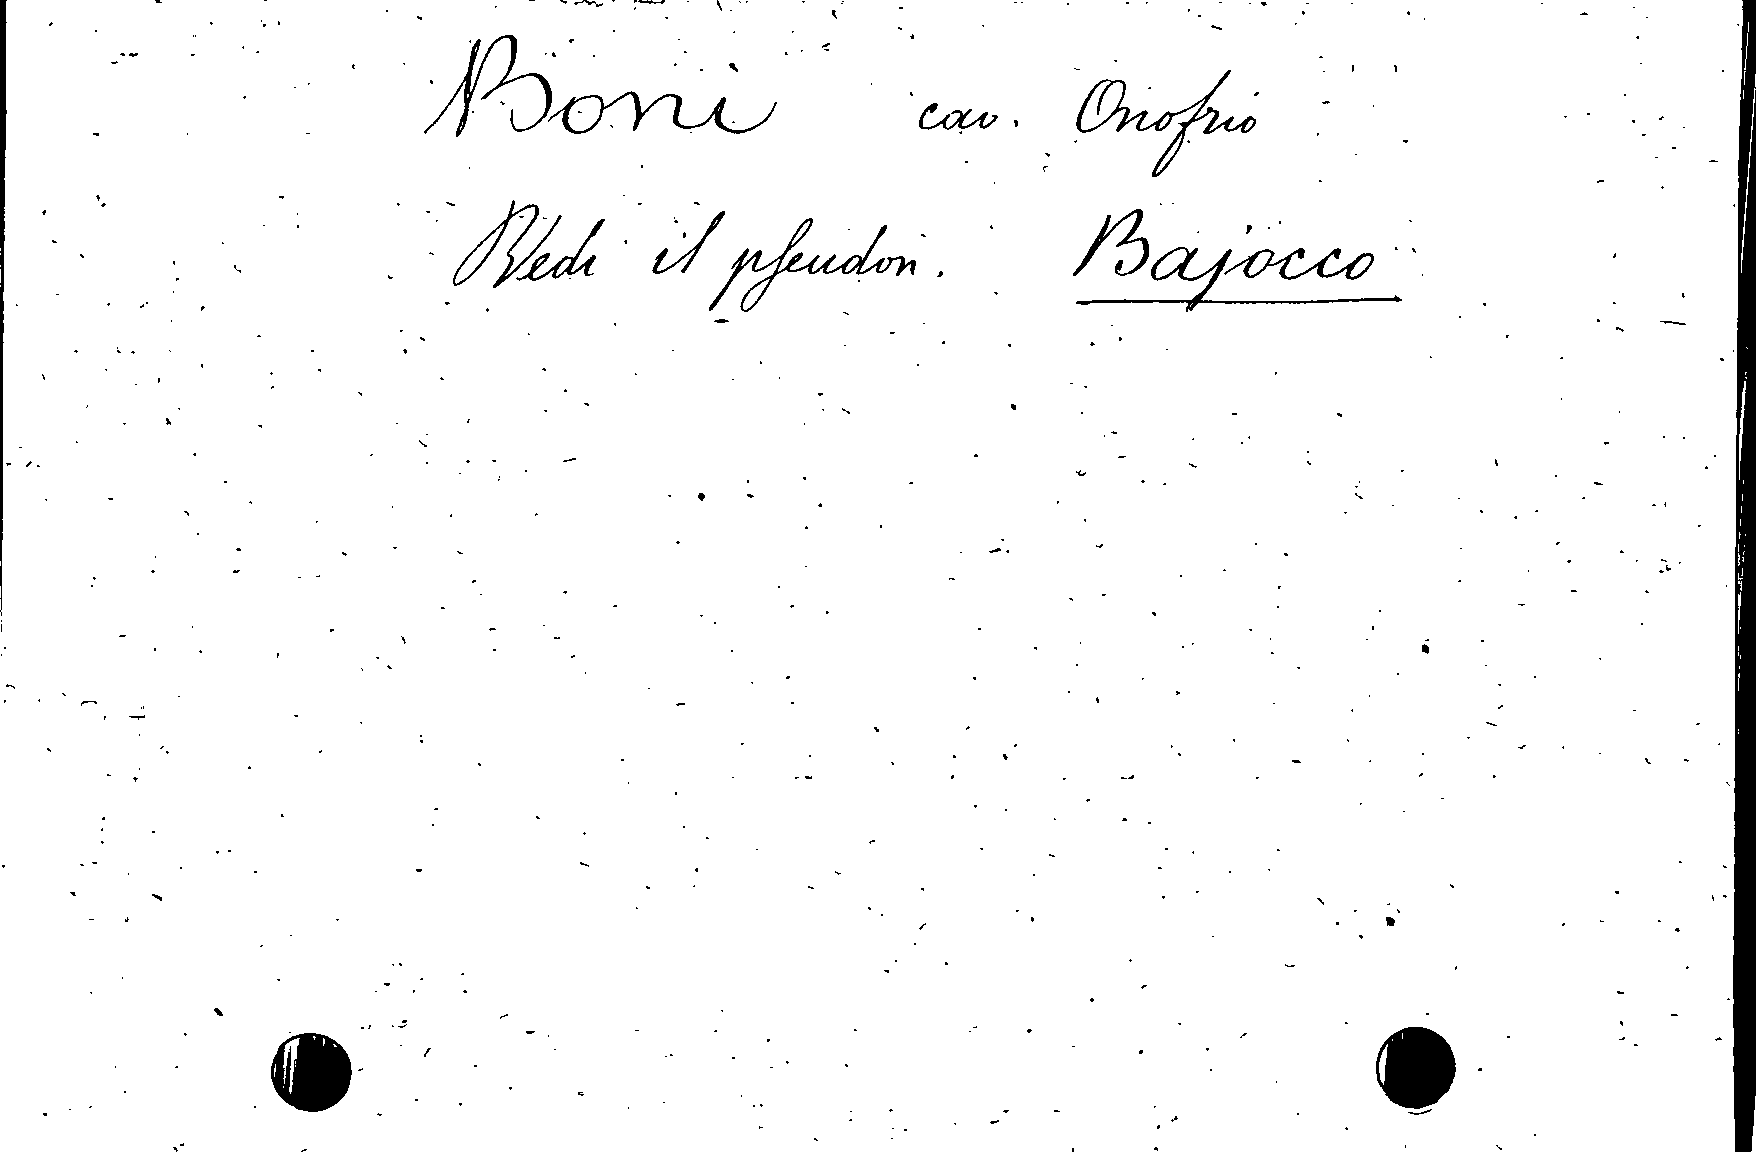 Boni cav. Onofrio
Vedi il pseudon. Bajocco